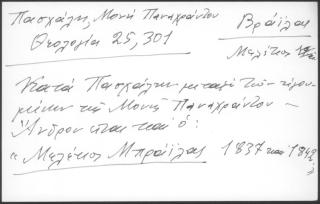 Πασχάλης, Μονή Παναχράντου
Θεολογία 25, 301
Βράϊλας
Μελέτιος
Κατά Πασχάλην μεταξύ των ηγου-
μένων της Μονής Παναχράντου -
Άνδρου είναι και ο:
"Μελέτιος Μπράϊλας 1837 και 1843